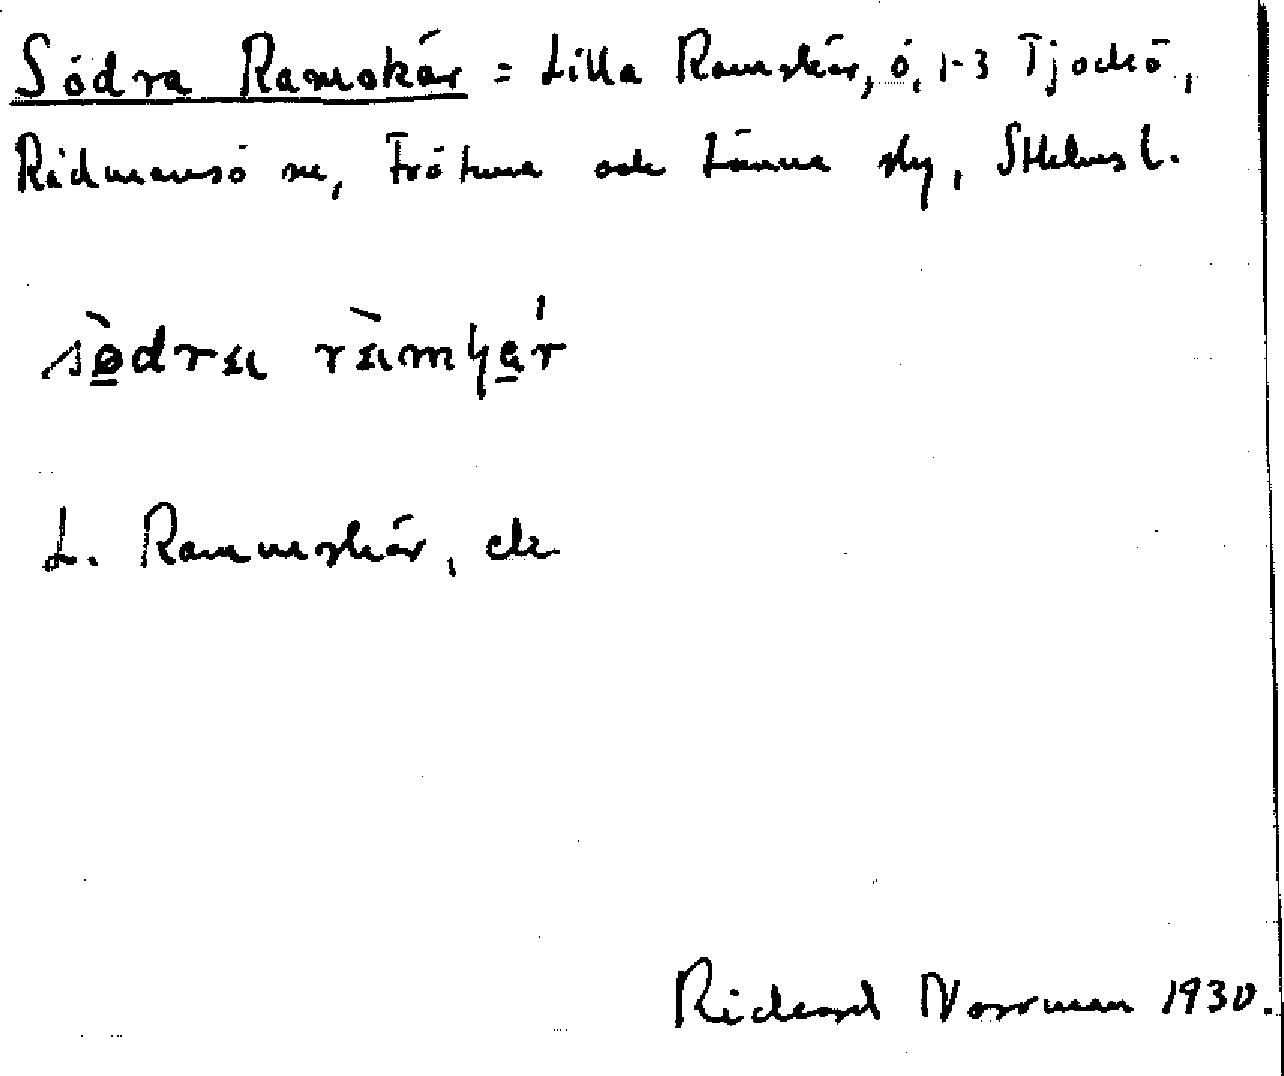 Södra Ramskär = Lilla Ramskär, ö, 1-3 Tjockö,
Rådmansö sn, Frötuna och Länna slg, Sthlms l.
södra ramʂär
L. Rammskär, ek
Rickard Norrman 1930.